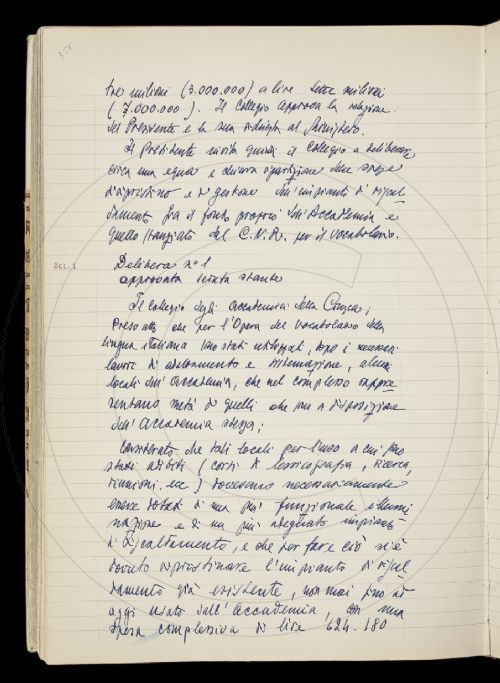 356
tre milioni (3.000.000) a lire sette milioni
(7.000.000). Il Collegio approva la relazione
del Presidente e la sua richiesta al Ministero.
Il Presidente invita quindi il Collegio a deliberare
circa una equa e chiara ripartizione delle spese
di ripristino e di gestione dell'impianto di riscal
damento fra il fondo proprio dell'Accademia e
quello stanziato dal C.N.R. per il Vocabolario.
DEL. 1
Delibera n° 1
approvata seduta stante
Il Collegio degli Accademici della Crusca;
Preso atto che per l'Opera del Vocabolario della
lingua italiana sono stati utilizzati, dopo i necessari
lavori di adattamento e sistemazione, alcuni
locali dell'Accademia, che nel complesso rappre
sentano metà di quelli che sono a disposizione
dell'Accademia stessa;
Considerato che tali locali per l'uso a cui sono
stati adibiti (corsi di lessicografia, ricerca,
riunioni ecc.) dovevano necessariamente
essere dotati di una più funzionale illumi
nazione e di un più adeguato impianto
di riscaldamento, e che per fare ciò si è
dovuto ripristinare l'impianto di riscal
damento già esistente, non mai fino ad
oggi usato dall'Accademia, con una
spesa complessiva di lire 624.180